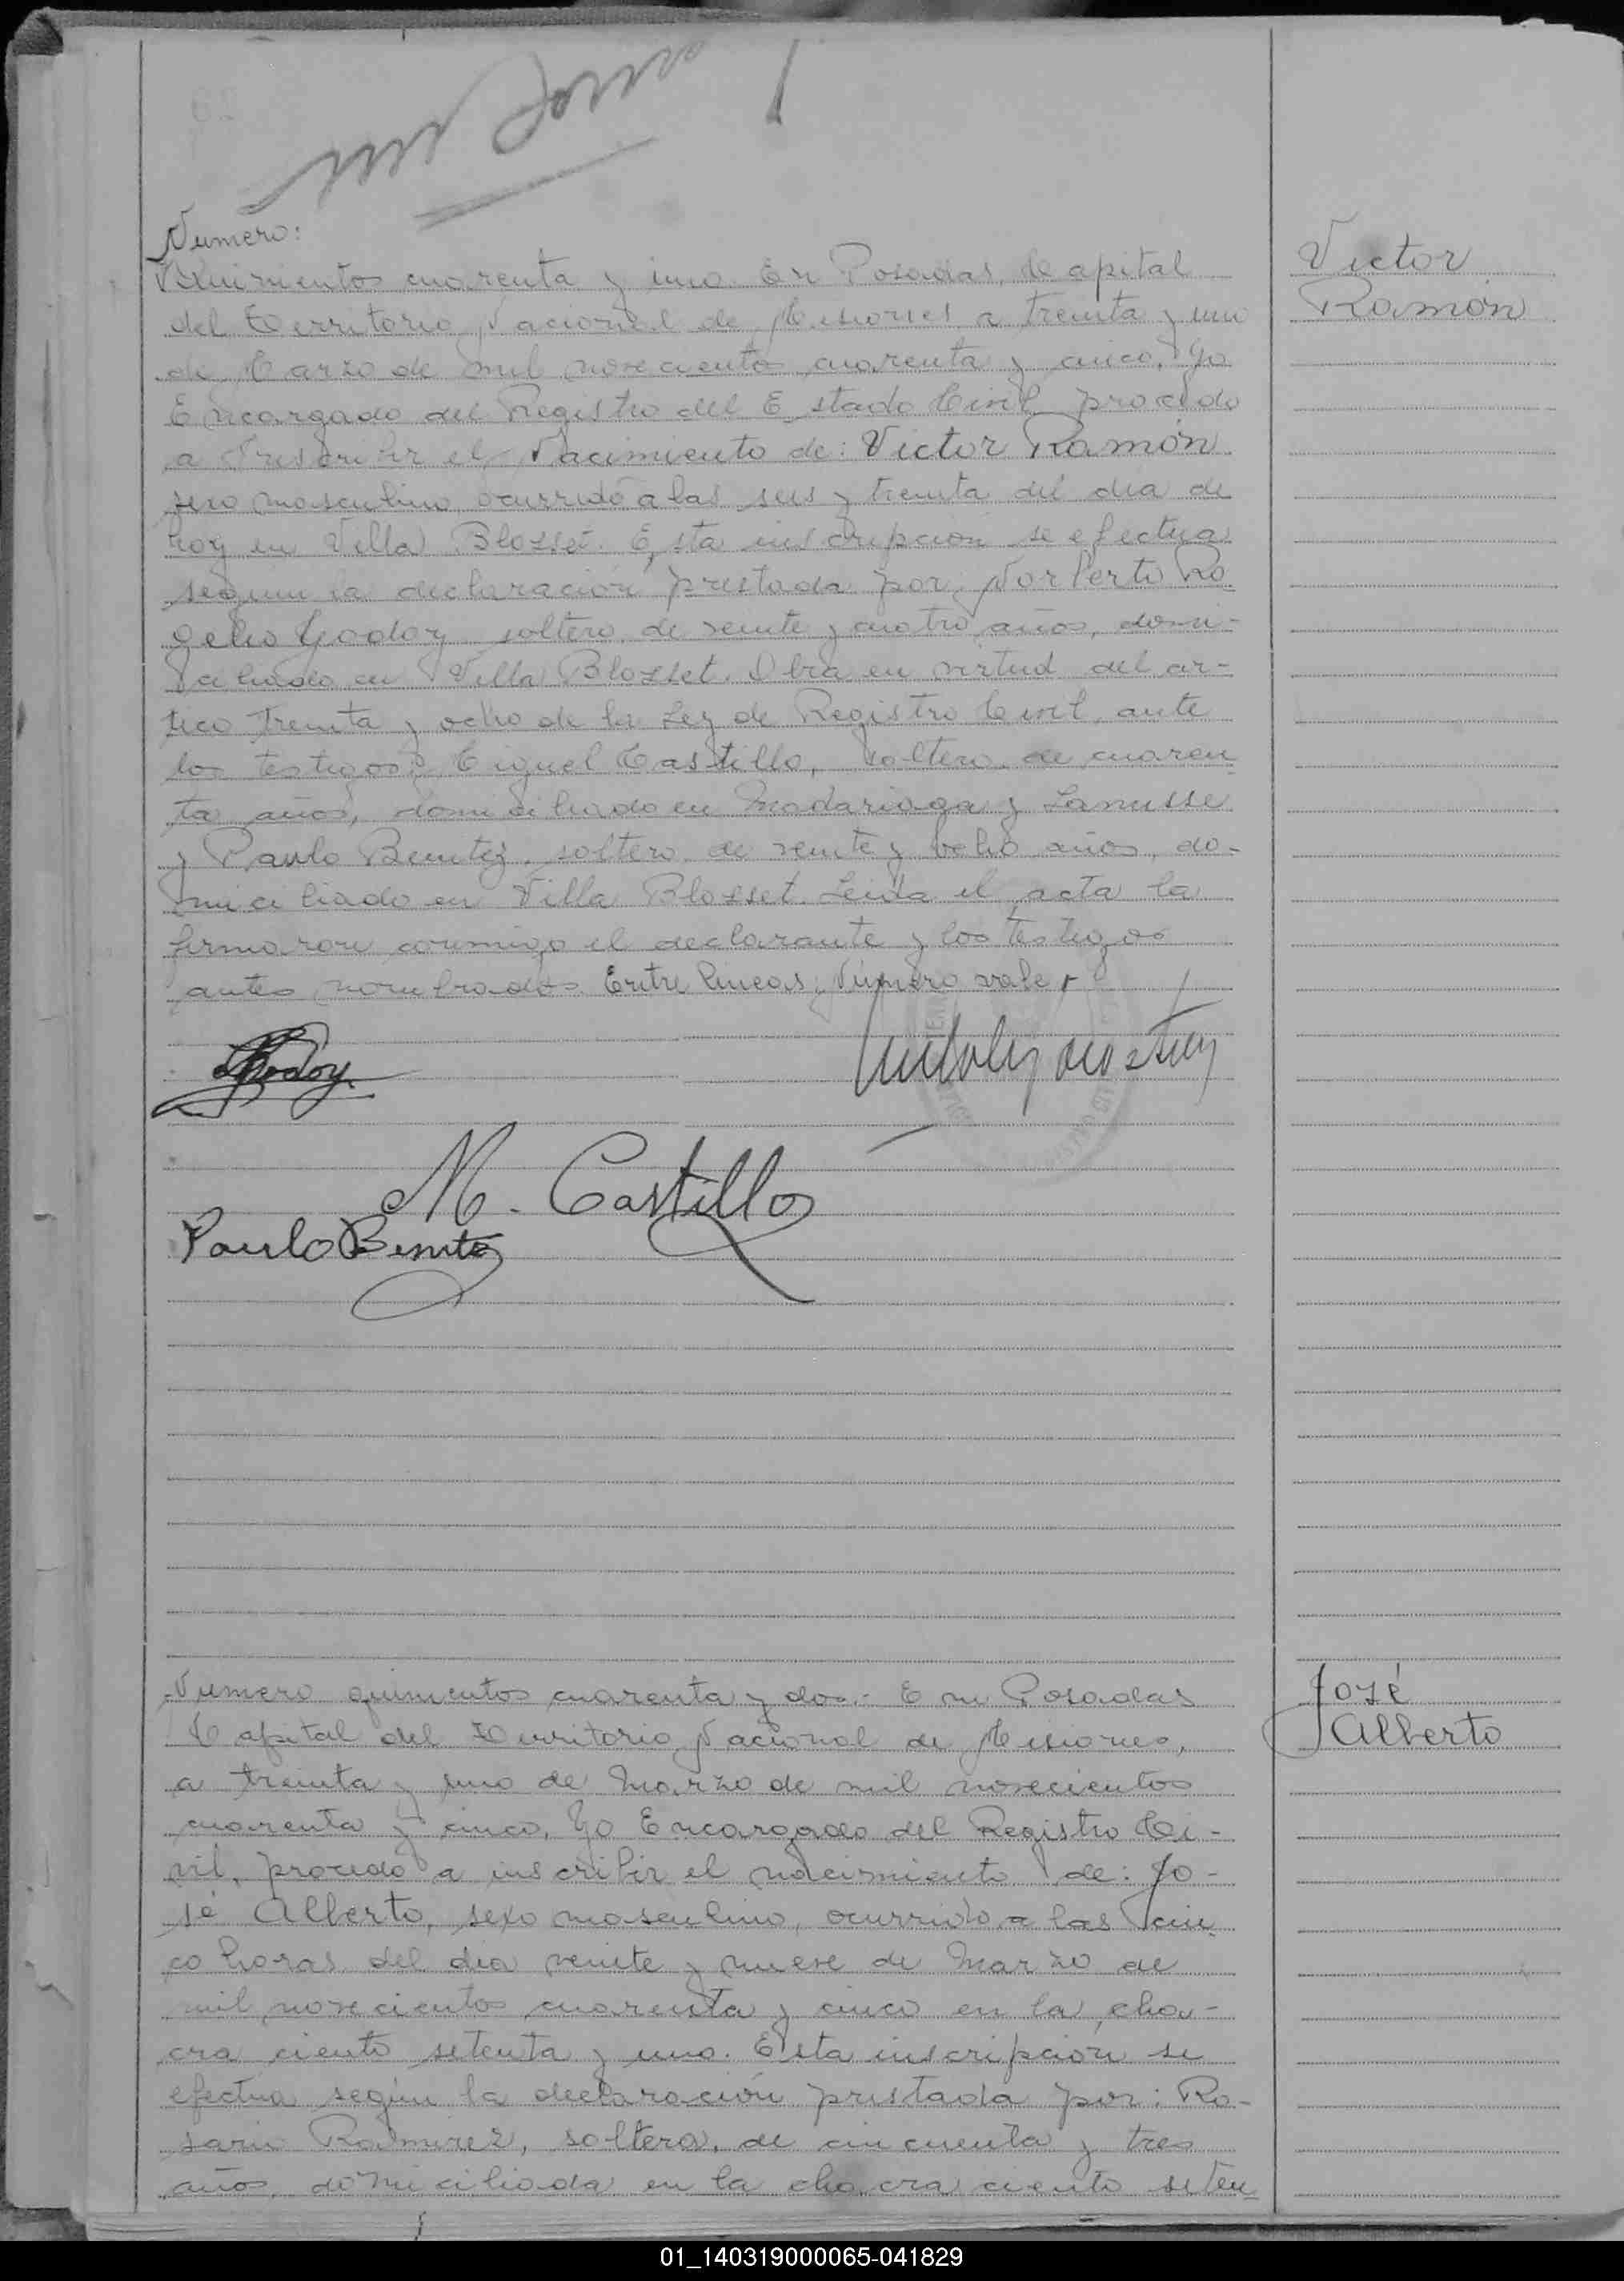 Numero:
Quinientos cuarenta y uno. En Posadas, Capital
del Territorio Nacional de Misiones a treinta y uno
de Marzo de mil novecientos cuarenta y cinco. Yo
Encargado del Registro del Estado Civil, procedo
a Inscribir el Nacimiento de: Victor Ramón
sexo masculino, ocurrido a las seis y treinta del dia de
hoy en Villa Blosset. Esta inscripción se efectua
segun la declaración prestada por Norberto Ro
gelio Godoy soltero, de veinte y cuatro años, domi-
ciliado en Villa Blosset. Obra en virtud del ar-
tico treinta y ocho de la Ley de Registro Civil, ante
los testigos: Miguel Castillo, soltero, de cuaren
ta años, domiciliado en Madariaga y Lanusse
y Paulo Benitez, soltero, de veinte y ocho años, do-
miciliado en Villa Blosset. Leida el acta la
firmaron conmigo el declarante y los testigos
antes nombrados. Entre lineas: Número vale
Godoy
M. Castillo
Paulo Benitez
Victor
Ramón
Numero quinientos cuarenta y dos.- En Posadas
Capital del Territorio Nacional de Misiones,
a treinta y uno de Marzo de mil novecientos
cuarenta y cinco. Yo Encargado del Registro Ci-
vil, procedo a inscribir el nacimiento de: Jo-
sé Alberto, sexo masculino, ocurrido a las cin
co horas del dia veinte y nueve de Marzo de
mil novecientos cuarenta y cinco en la cha-
cra ciento setenta y uno. Esta inscripción se
efectua según la declaración prestada por: Ro-
sario Ramirez, soltera, de cincuenta y tres
años, domiciliada en la chacra ciento seten
José
Alberto
01_140319000065-041829